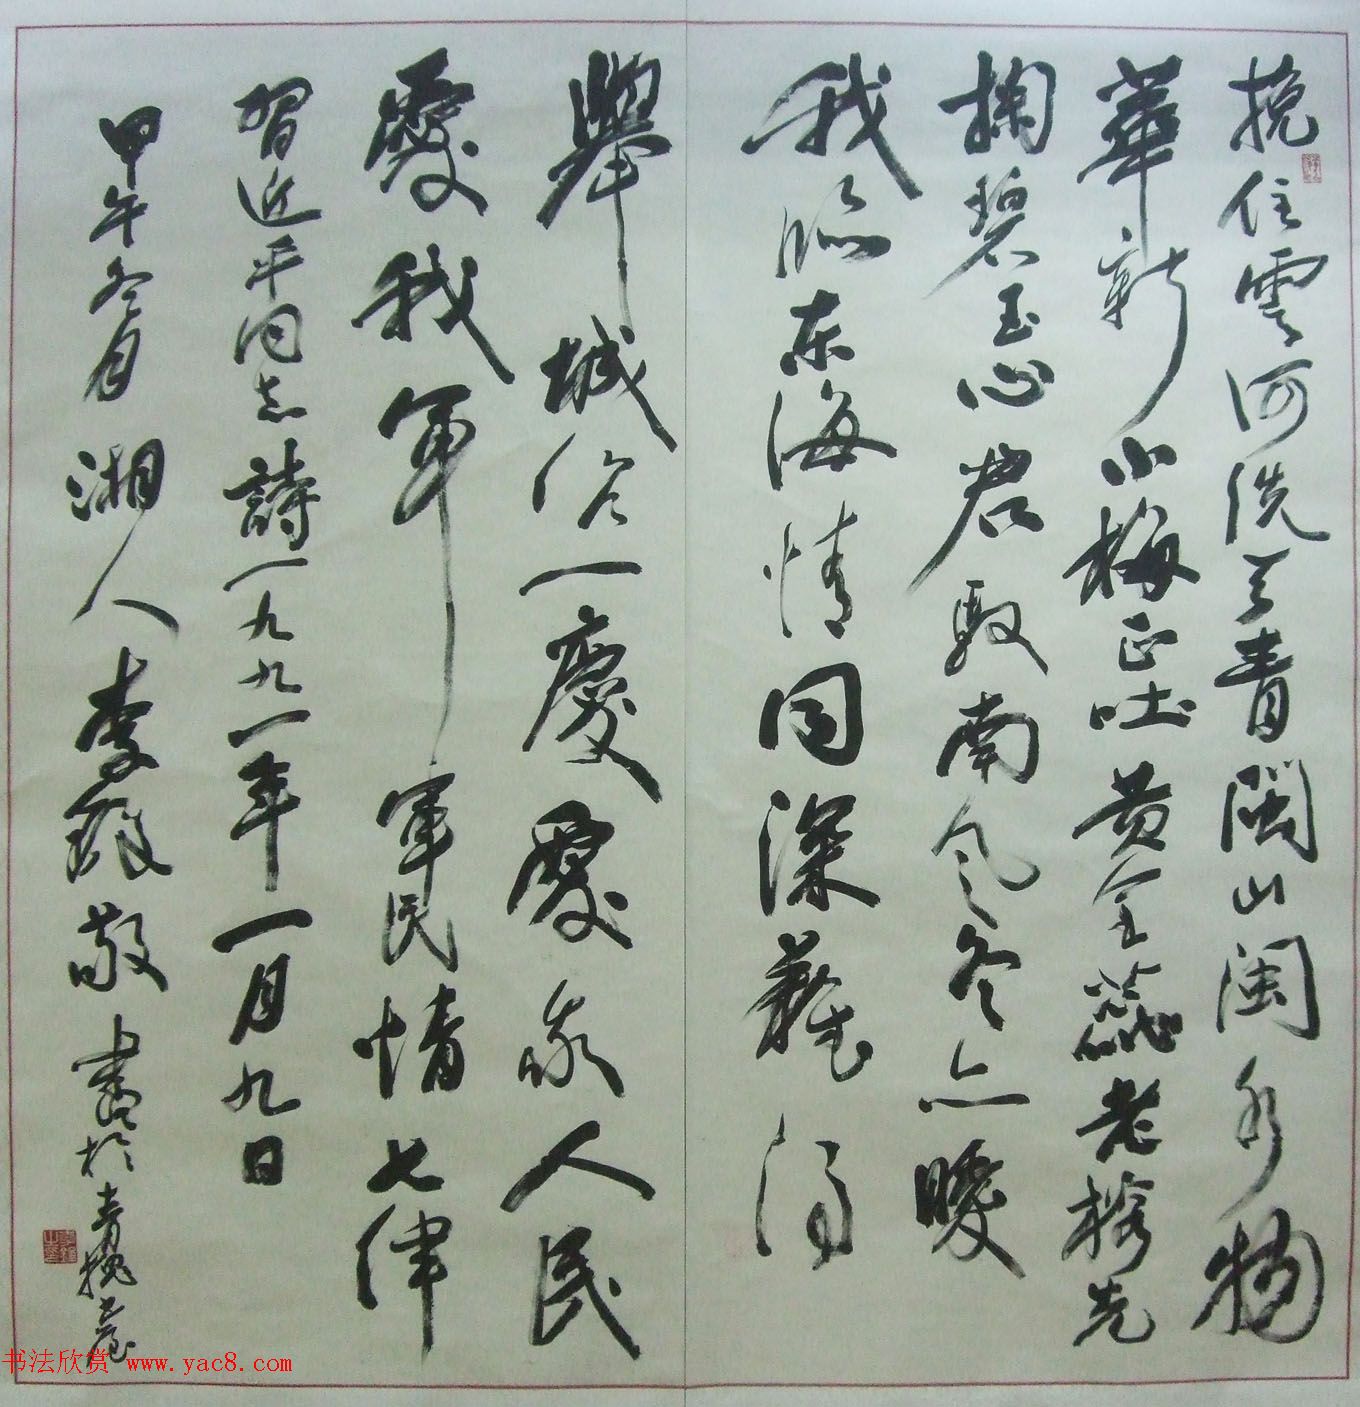 挽住雲河洗天青閩山閩水物
華新小梅正吐黄金蕊老榕先
掬碧玉心君馭南风冬亦暖
我临东海情同深難得
舉城作一慶愛我人民
愛我軍 軍民情七律
習近平同志詩一九九一年一月九日
甲午冬月湘人李敬書於青槐
书法欣赏 www.yac8.com